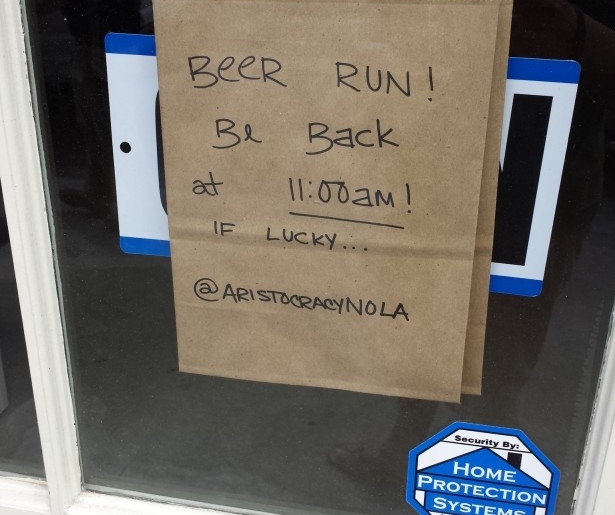 BeeR RUN!
Be Back
at 11:00am!
IF LUCKY...
@ARISTOCRACYNOLA
Security By:
HOME
PROTECTION
SYSTEMS